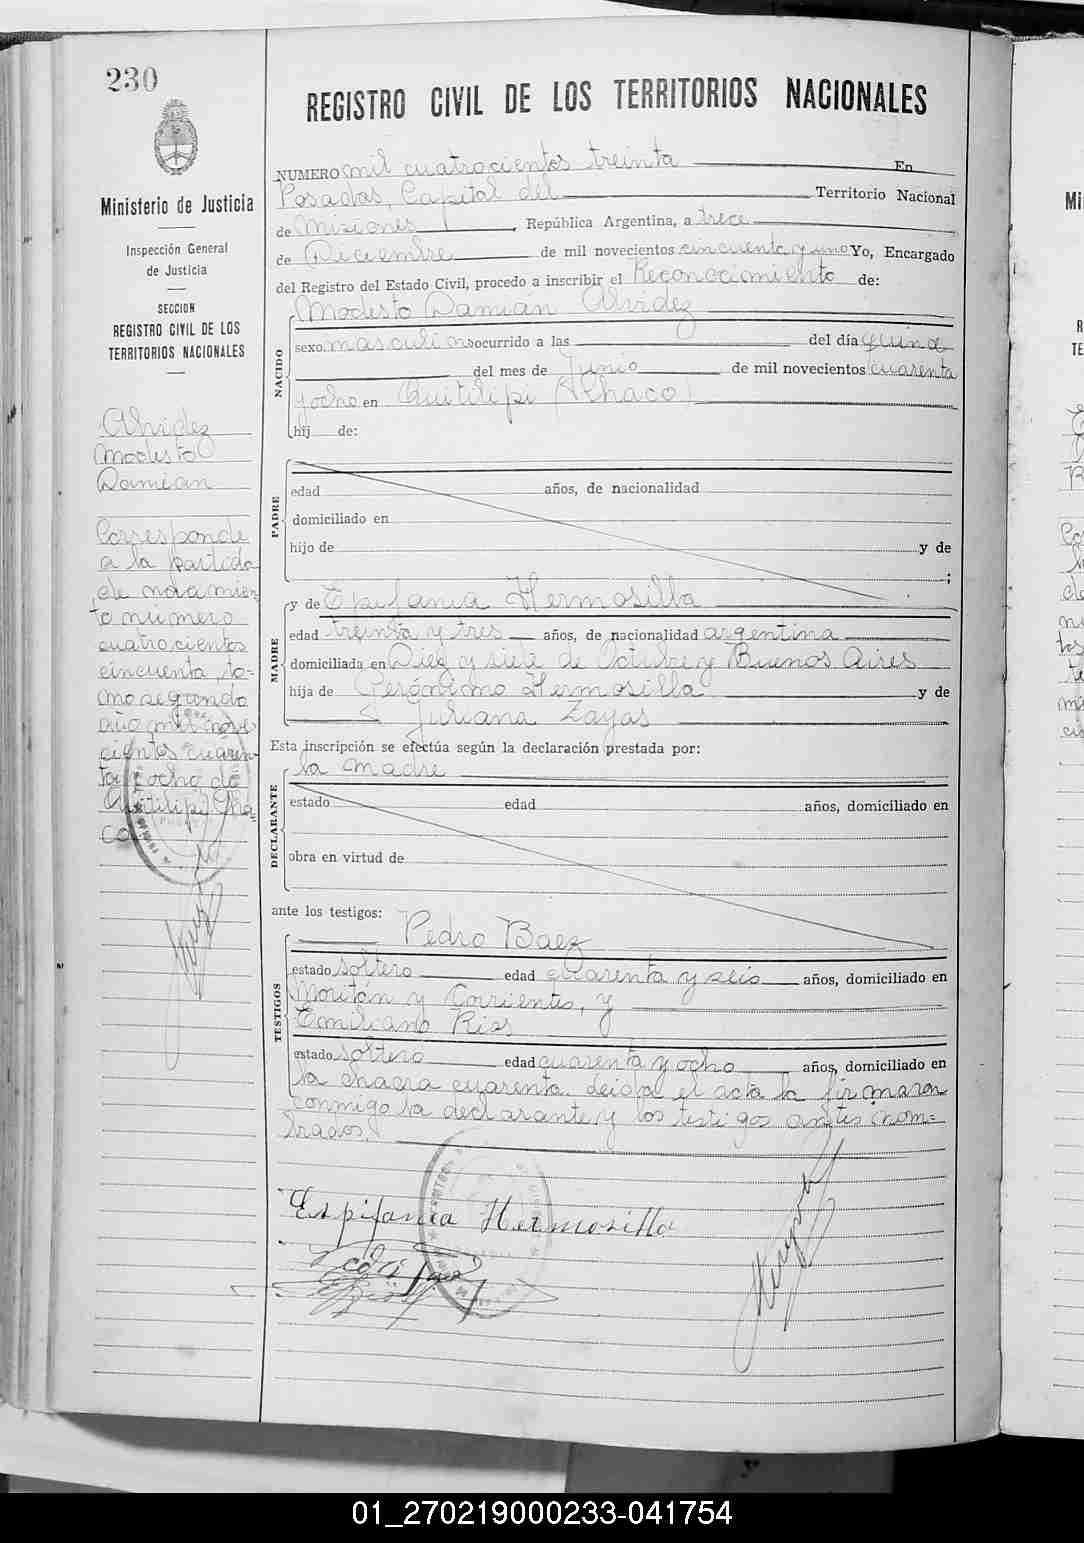 230
Ministerio de Justicia
Inspección General
de Justicia
SECCION
REGISTRO CIVIL DE LOS
TERRITORIOS NACIONALES
Alvidez
Modesto
Damián
Corresponde
a la partida
de nacimien
to número
cuatrocientos
cincuenta, to-
mo segundo
año mil nove
cientos cuaren
ta y ocho de
Quitilipi Cha
co.
REGISTRO CIVIL DE LOS TERRITORIOS NACIONALES
NUMERO mil cuatrocientos treinta En
Posadas, Capital del Territorio Nacional
de Misiones, República Argentina, a trece
de Diciembre de mil novecientos cincuenta y uno Yo, Encargado
del Registro del Estado Civil, procedo a inscribir el Reconocimiento de:
NACIDO
Modesto Damián Alvidez
sexo masculino ocurrido a las del día quince
del mes de Junio de mil novecientos cuarenta
y ocho en Quitilipi (Chaco)
hij de:
PADRE
edad años, de nacionalidad
domiciliado en
hijo de y de
;
MADRE
y de Epifania Hermosilla
edad treinta y tres años, de nacionalidad argentina
domiciliada en Diez y siete de Octubre y Buenos Aires
hija de Gerónimo Hermosilla y de
Juliana Zayas
Esta inscripción se efectúa según la declaración prestada por:
DECLARANTE
la madre
estado edad años, domiciliado en
obra en virtud de
ante los testigos:
TESTIGOS
Pedro Baez
estado soltero edad cuarenta y seis años, domiciliado en
y Corrientes, y
Emiliano Rios
estado soltero edad cuarenta y ocho años, domiciliado en
la chacra cuarenta. Leida el acta la firmaron
conmigo la declarante y los testigos antes nom-
brados.
Espifania Hermosilla
01_270219000233-041754